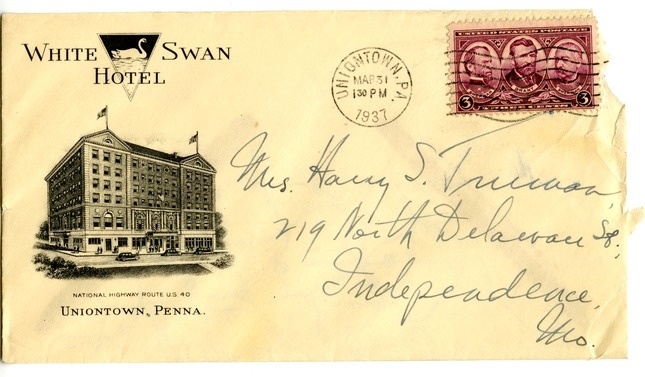 WHITE SWAN
HOTEL
NATIONAL HIGHWAY ROUTE U.S. 40
UNIONTOWN, PENNA.
UNIONTOWN, PA.
MAR 31
1 30 PM
1937
UNITED STATES POSTAGE
3 GRANT 3
Mrs. Harry S. Truman,
219 North Delaware St.,
Independence,
Mo.